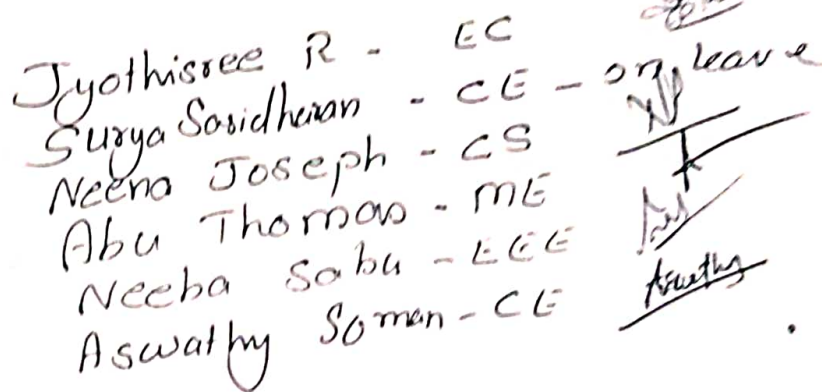 Jyothisree R - EC
Surya Sasidharan - CE - on leave
Neena Joseph - CS
Abu Thomas - ME
Neeba Sabu - EEE
Aswathy Soman - CE Aswathy